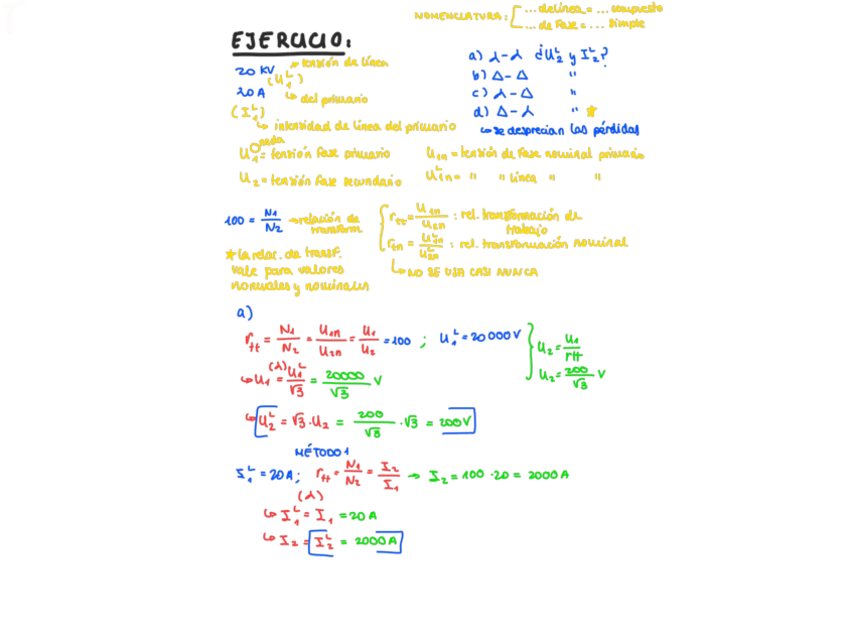 NOMENCLATURA: { ... de línea = ... compuesto
... de Fase = ... Simple
EJERCICIO:
20 KV → tensión de línea
(U₁ᴸ) ↳ del primario
20 A
(I₁ᴸ)
↳ intensidad de línea del primario
a) ⅄-⅄ ¿U₂ᴸ y I₂ᴸ?
b) Δ-Δ "
c) ⅄-Δ "
d) Δ-⅄ " ★
↳ se desprecian las pérdidas
U₁ = tensión Fase primario
U₁n = tensión de Fase nominal primario
U₂ = tensión Fase secundario
U₁ᴸn = " " línea " "
100 = N₁/N₂ → relación de transform.
{ rtt = U₁n/U₂n : rel. transformación de trabajo
rtn = U₁ᴸn/U₂ᴸn : rel. transformación nominal
↳ NO SE USA CASI NUNCA
★ la relac. da transf.
vale para valores
normales y nominales
a)
rtt = N₁/N₂ = U₁n/U₂n = U₁/U₂ = 100 ; U₁ᴸ = 20000 V } U₂ = U₁/rtt
U₂ = 200/√3 V
↳ U₁ =(⅄) U₁ᴸ/√3 = 20000/√3 V
↳ U₂ᴸ = √3 · U₂ = 200/√3 · √3 = 200 V
MÉTODO 1
I₁ᴸ = 20 A ; rtt = N₁/N₂ = I₂/I₁ → I₂ = 100 · 20 = 2000 A
(⅄)
↳ I₁ᴸ = I₁ = 20 A
↳ I₂ = I₂ᴸ = 2000 A